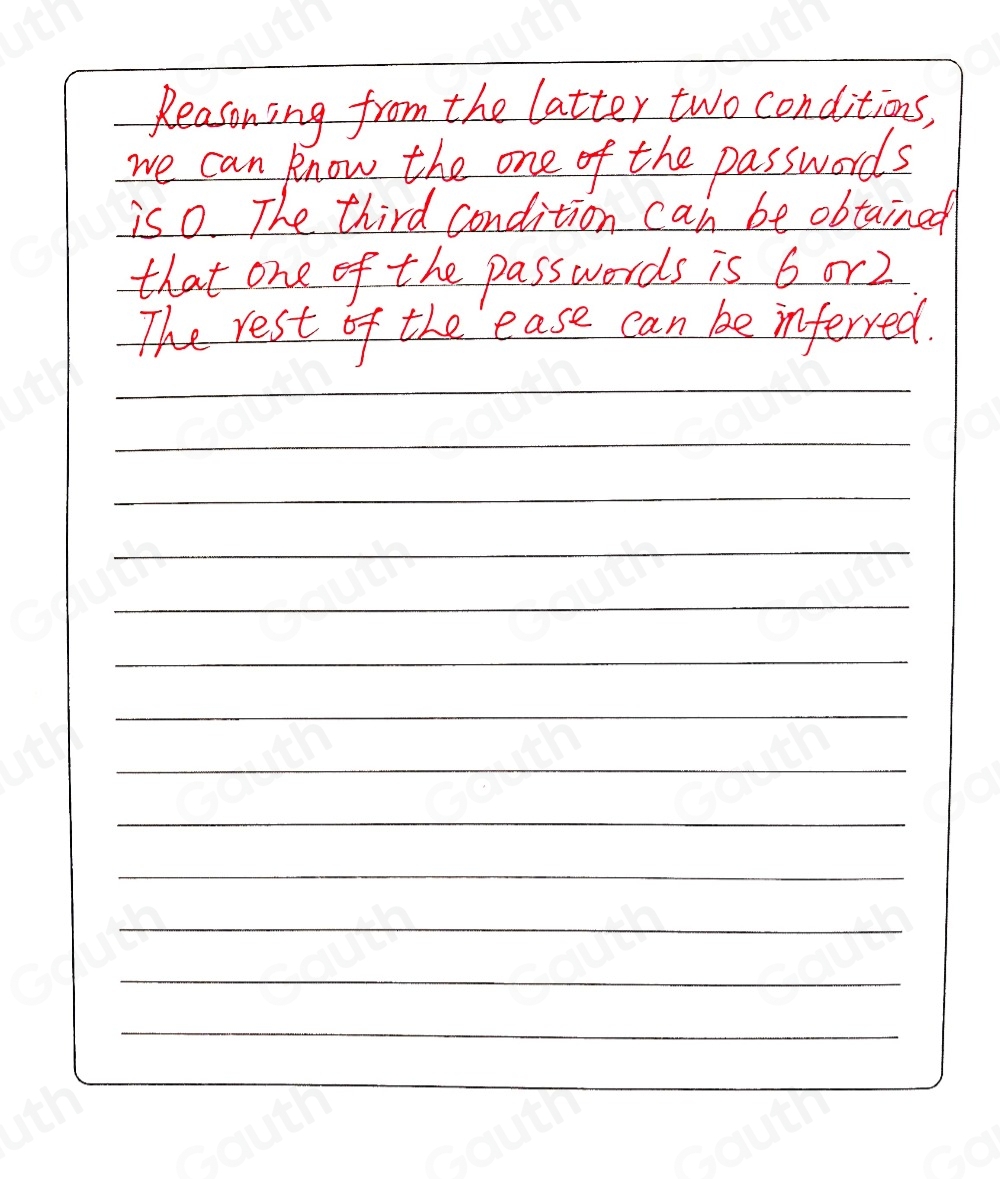 Reasoning from the latter two conditions,
we can know the one of the passwords
is 0. The third condition can be obtained
that one of the passwords is 6 or 2.
The rest of the ease can be inferred.